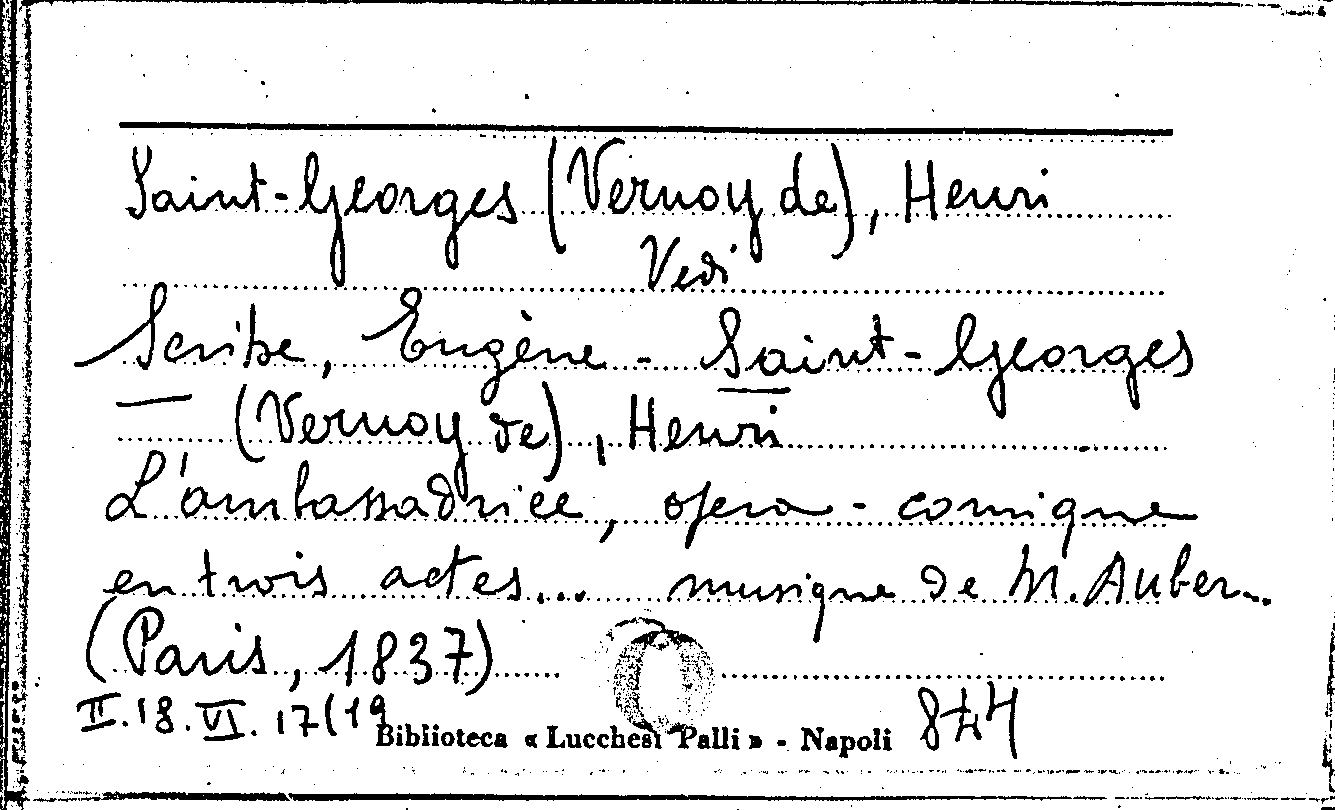 Saint-Georges (Vernoy de), Henri
Vedi
Scribe, Eugène - Saint-Georges
(Vernoy de), Henri
L'ambassadrice, opera-comique
en trois actes... musique de M. Auber...
(Paris, 1837)
II.18.VI.17(19
Biblioteca « Lucchesi Palli » - Napoli
844